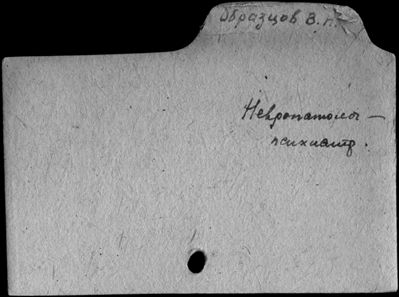 Образцов В. п.
Невропатолог —
психиатр.